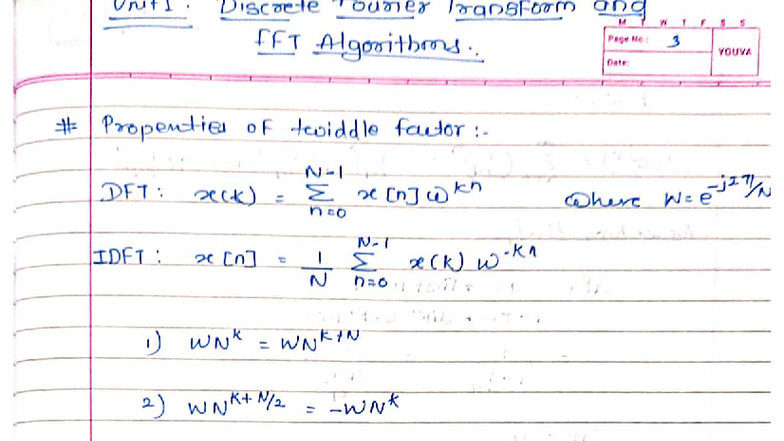 Unit 1. Discrete Fourier Transform and
FFT Algorithms..
M T W T F S S
Page No.: 3
YOUVA
Date:
# Properties of twiddle factor :-
DFT : x(k) = N-1 Σ n=0 x[n] ω^kn where W = e^-j2π/N
IDFT : x[n] = 1/N N-1 Σ n=0 x(k) w^-kn
1) WN^k = WN^k+N
2) WN^k+N/2 = -WN^k